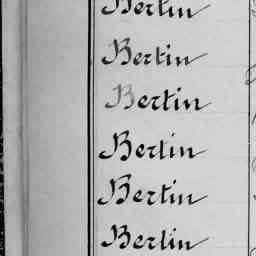 Bertin
Bertin
Bertin
Bertin
Bertin
Bertin